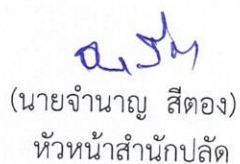 (นายจำนาญ สีตอง)
หัวหน้าสำนักปลัด